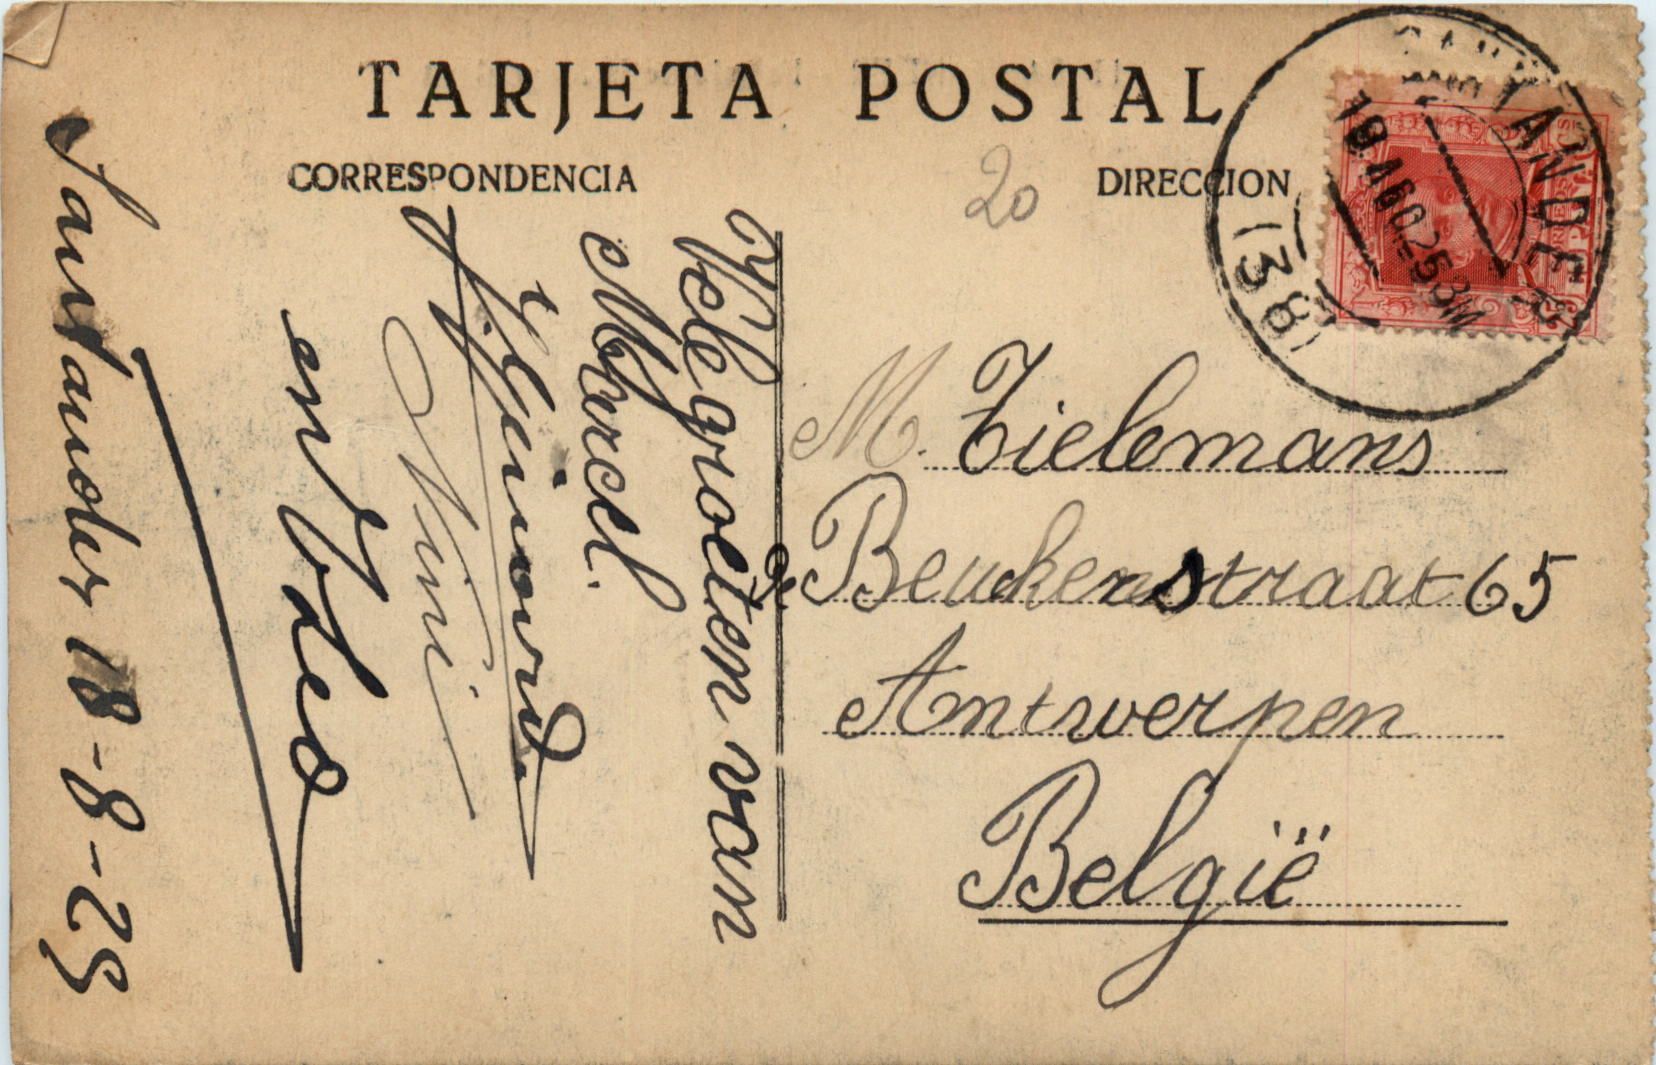 TARJETA POSTAL
CORRESPONDENCIA
DIRECCION
20
Santander 18-8-25
Vele groeten van
Marcel.
Nini
en Leo
SANTANDER
18 AGO 25 3M
(38)
M. Tielemans
Beukenstraat 65
Antwerpen
België